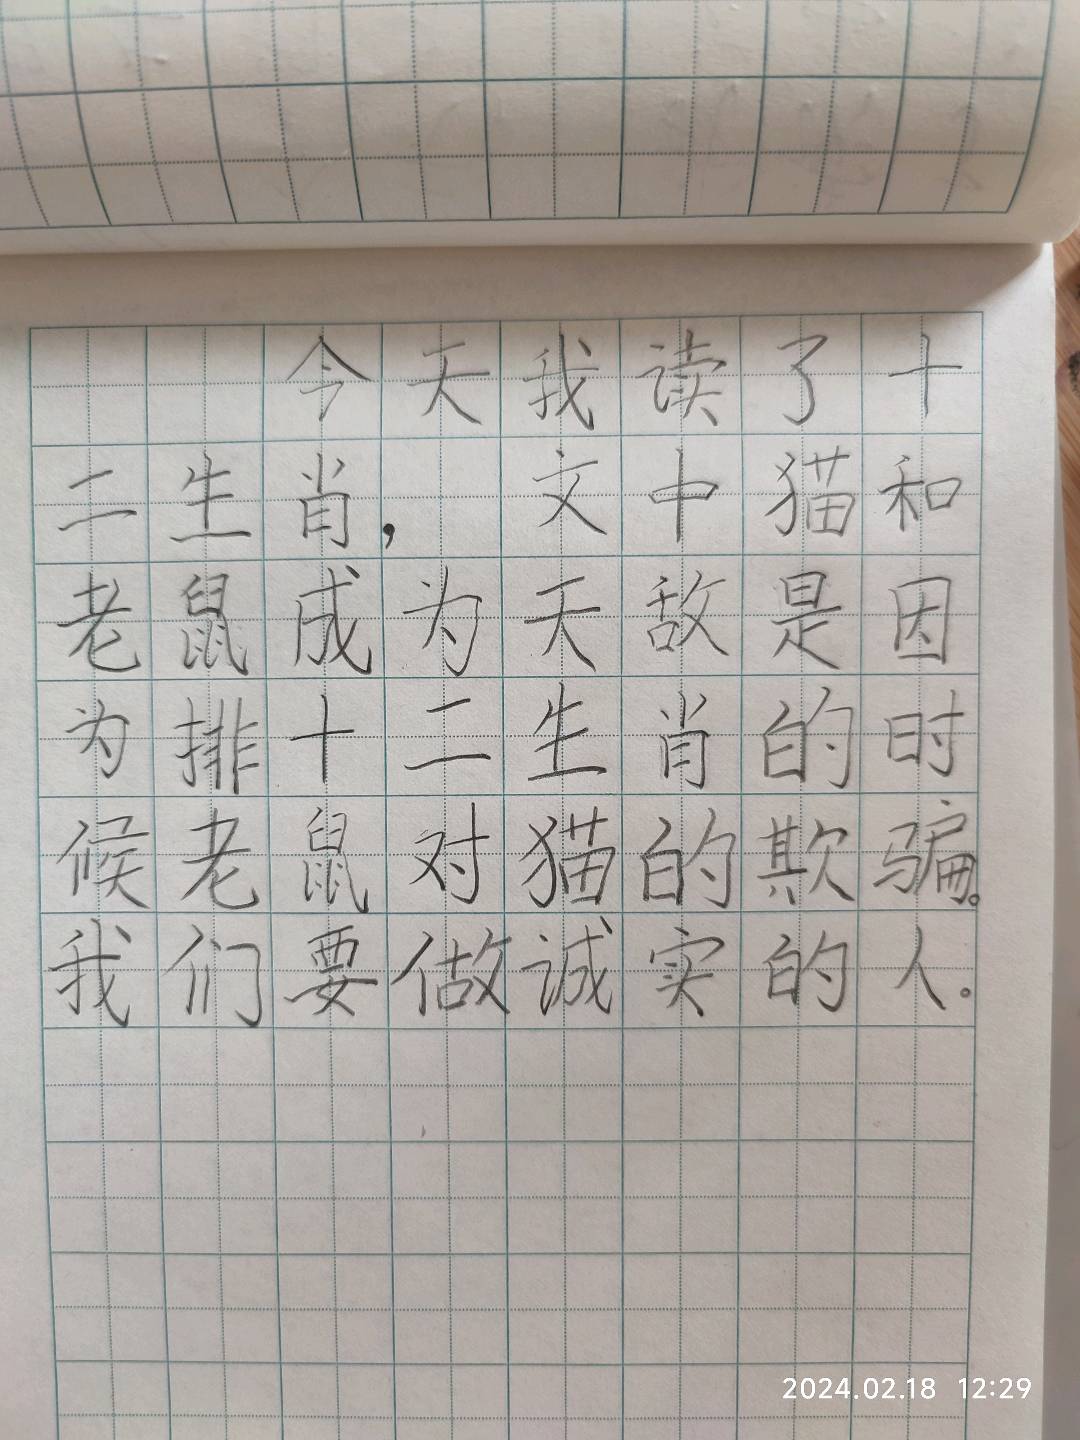 今天我读了十
二生肖，文中猫和
老鼠成为天敌是因
为排十二生肖的时
候老鼠对猫的欺骗。
我们要做诚实的人。
2024.02.18 12:29